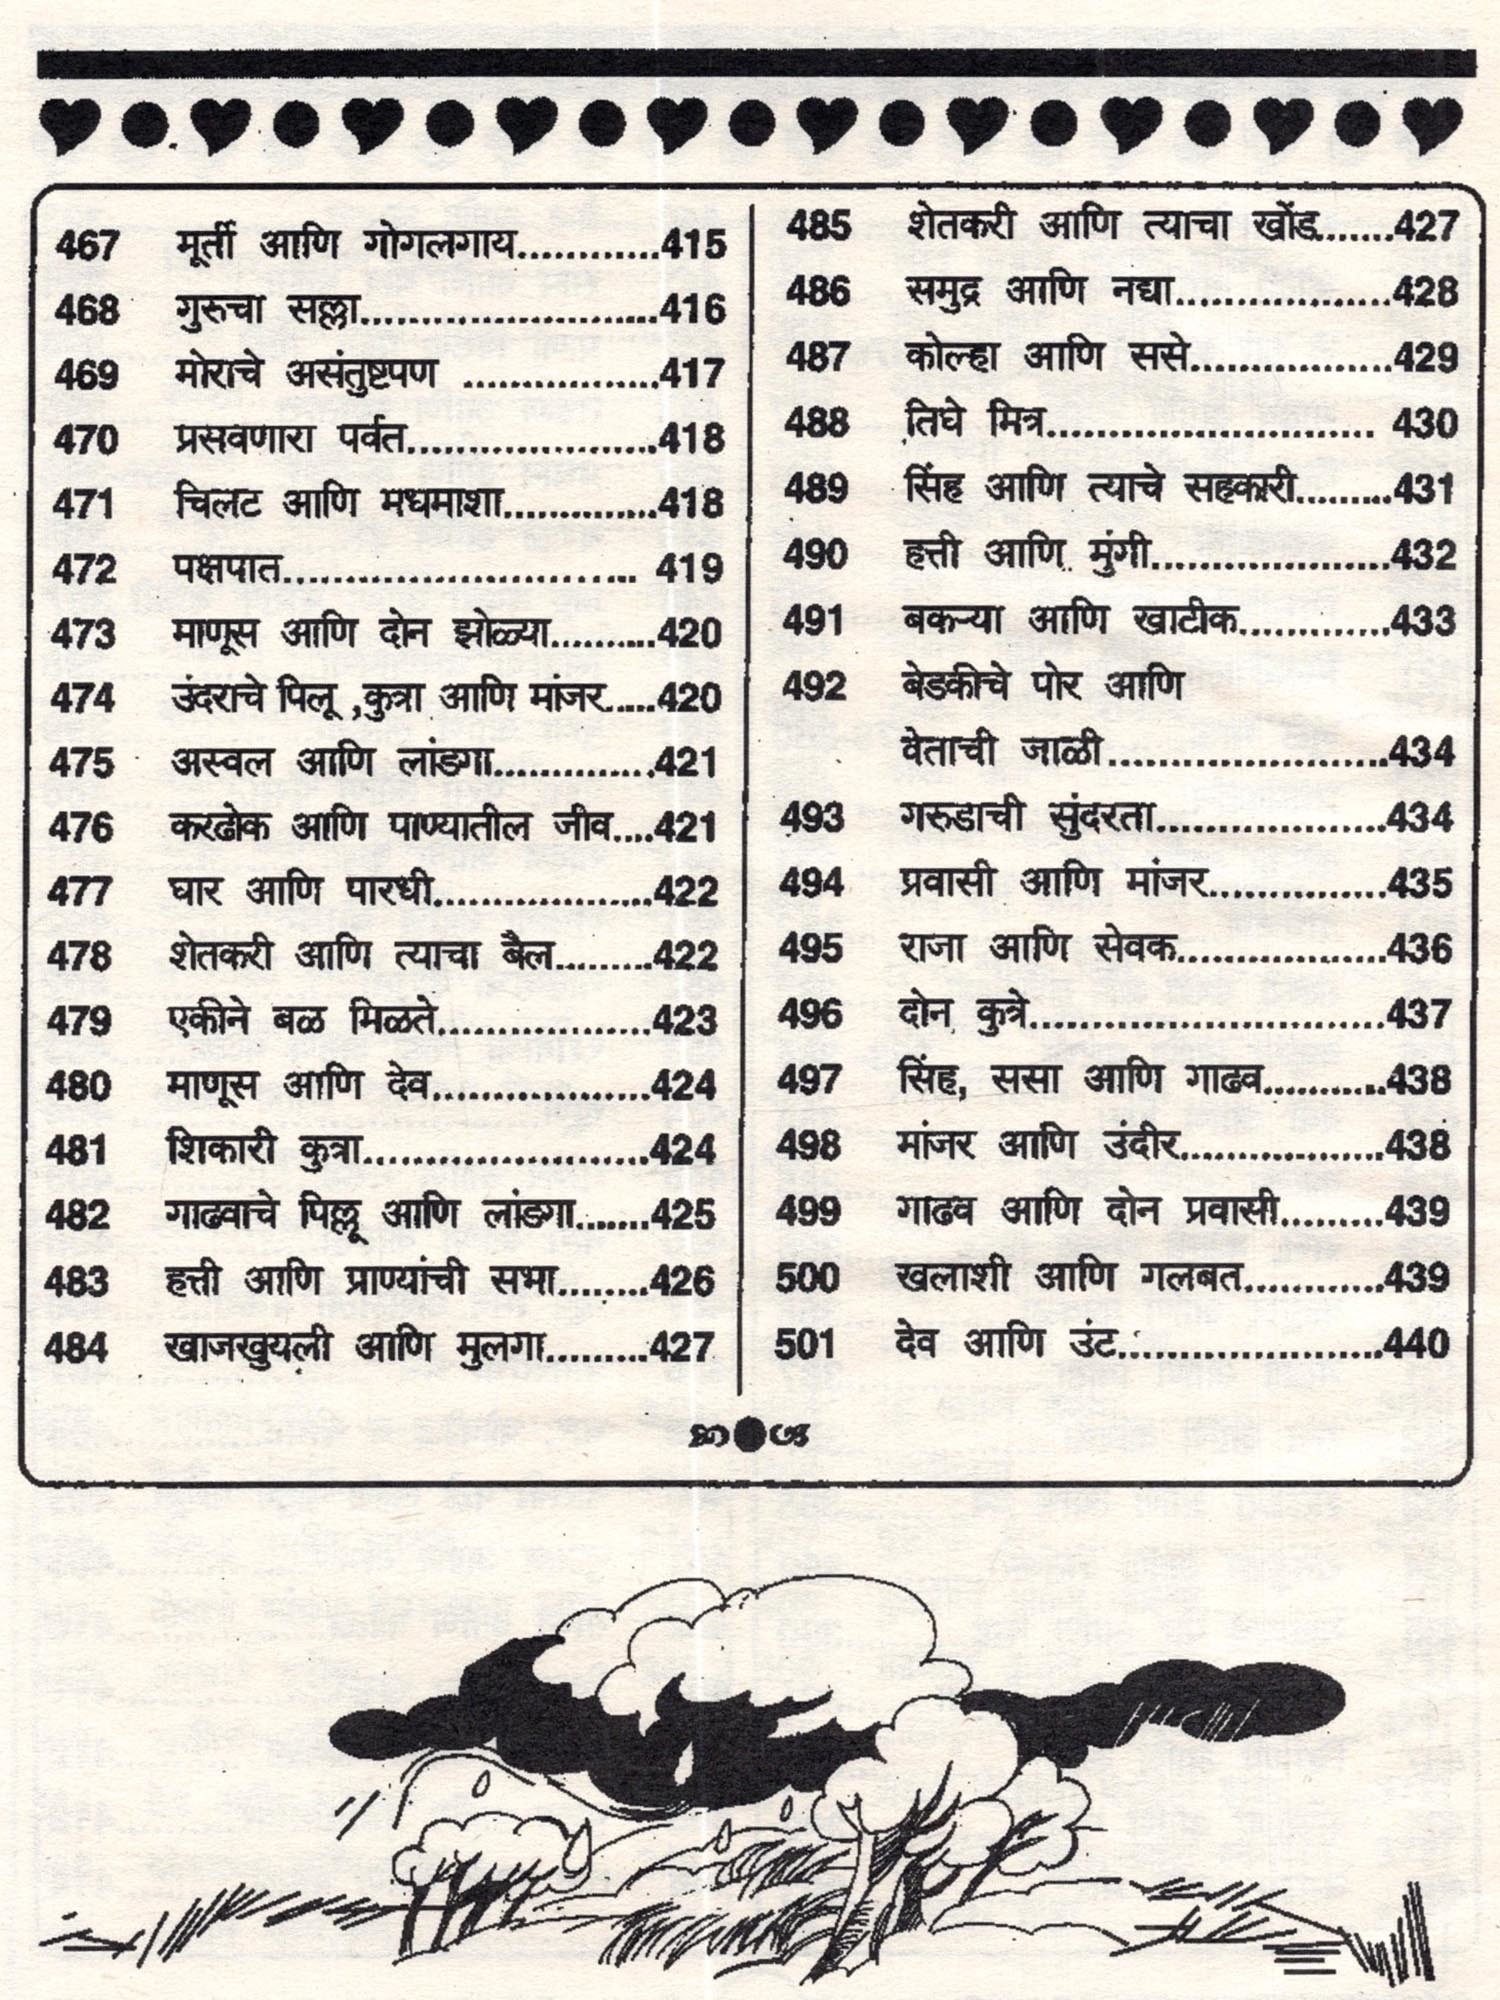 467 मूर्ती आणि गोगलगाय.............415
468 गुरुचा सल्ला........................416
469 मोराचे असंतुष्टपण ................417
470 प्रसवणारा पर्वत....................418
471 चिलट आणि मधमाशा.............418
472 पक्षपात............................. 419
473 माणूस आणि दोन झोळ्या..........420
474 उंदराचे पिलू ,कुत्रा आणि मांजर.....420
475 अस्वल आणि लांडगा..............421
476 करढोक आणि पाण्यातील जीव....421
477 घार आणि पारधी...................422
478 शेतकरी आणि त्याचा बैल.........422
479 एकीने बळ मिळते..................423
480 माणूस आणि देव...................424
481 शिकारी कुत्रा........................424
482 गाढवाचे पिल्लू आणि लांडगा.......425
483 हत्ती आणि प्राण्यांची सभा........426
484 खाजखुयली आणि मुलगा.........427
485 शेतकरी आणि त्याचा खोंड.......427
486 समुद्र आणि नद्या..................428
487 कोल्हा आणि ससे..................429
488 तिघे मित्र............................ 430
489 सिंह आणि त्याचे सहकारी.........431
490 हत्ती आणि मुंगी....................432
491 बकऱ्या आणि खाटीक.............433
492 बेडकीचे पोर आणि
वेताची जाळी.......................434
493 गरुडाची सुंदरता...................434
494 प्रवासी आणि मांजर...............435
495 राजा आणि सेवक..................436
496 दोन कुत्रे..............................437
497 सिंह, ससा आणि गाढव...........438
498 मांजर आणि उंदीर..................438
499 गाढव आणि दोन प्रवासी.........439
500 खलाशी आणि गलबत............439
501 देव आणि उंट......................440